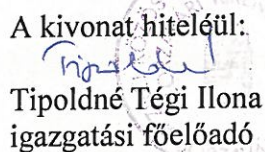 A kivonat hiteléül:
Tipoldné Tégi Ilona
igazgatási főelőadó